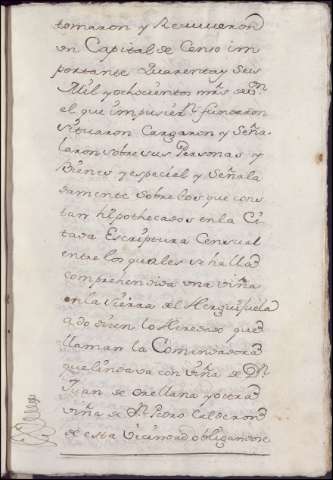 tomaron y Recivieron
un Capital de Censo im
portante Quarenta y Seis
Mil y ochocientos mrs de vn
el que impusieron fundaron
situaron Cargaron y Seña
laron sobre sus Personas y
Bienes y especial y Señala
damente sobre los que cons
tan hipothecados en la Ci
tada Escriptura Censual
entre los quales se halla
Comprehendida una viña
en la sierra de Herguijuela
a do dicen lo Heredad que
llaman la Comendadora
que linda con viña de Dn
Juan de Orellana y otra
viña de Dn Pedro Calderon
de esta vicindad obligandose